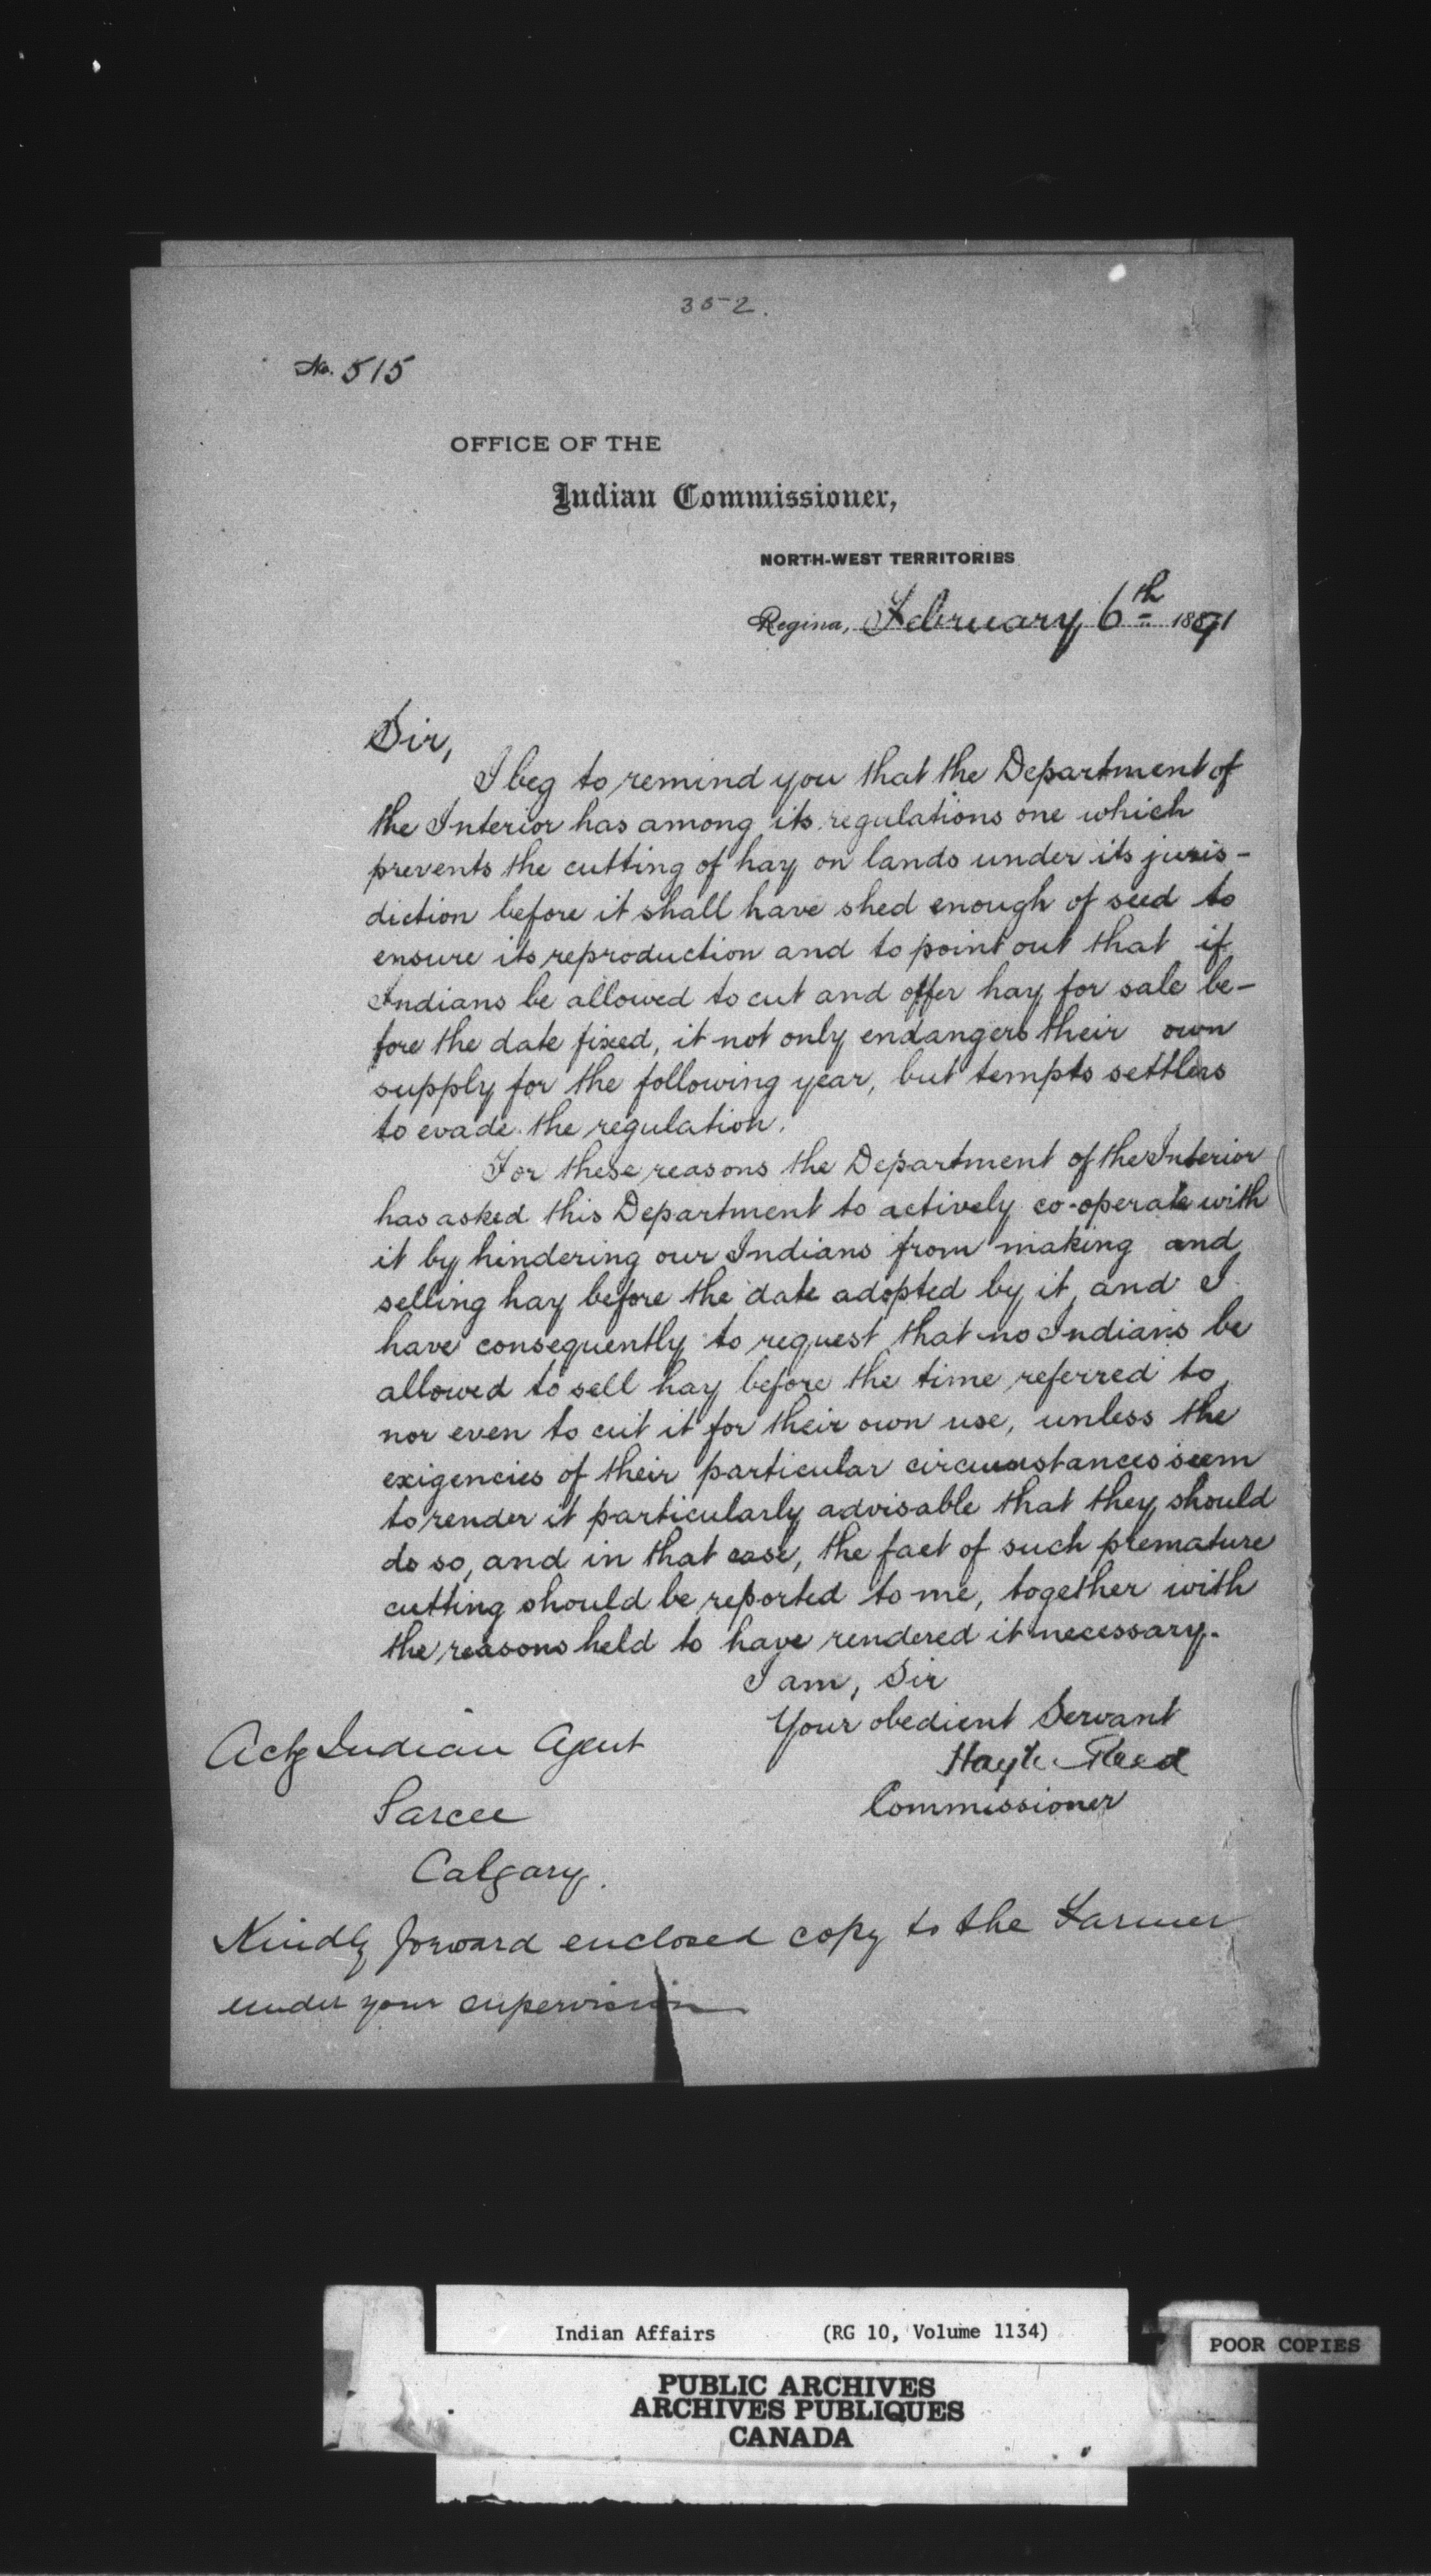 352.
No. 515
OFFICE OF THE
Indian Commissioner,
NORTH-WEST TERRITORIES
Regina, February 6th 1891
Sir,
I beg to remind you that the Department of
the Interior has among its regulations one which
prevents the cutting of hay on lands under its juris-
diction before it shall have shed enough of seed to
ensure its reproduction and to point out that if
Indians be allowed to cut and offer hay for sale be-
fore the date fixed, it not only endangers their own
supply for the following year, but tempts settlers
to evade the regulation.
For these reasons the Department of the Interior
has asked this Department to actively co-operate with
it by hindering our Indians from making and
selling hay before the date adopted by it, and I
have consequently to request that no Indians be
allowed to sell hay before the time referred to,
nor even to cut it for their own use, unless the
exigencies of their particular circumstances seem
to render it particularly advisable that they should
do so, and in that case, the fact of such premature
cutting should be reported to me, together with
the reasons held to have rendered it necessary.
I am, Sir
Your obedient Servant
Hayter Reed
Commissioner
Actg Indian Agent
Sarcee
Calgary.
Kindly forward enclosed copy to the Farmer
under your supervision
Indian Affairs (RG 10, Volume 1134)
POOR COPIES
PUBLIC ARCHIVES
ARCHIVES PUBLIQUES
CANADA